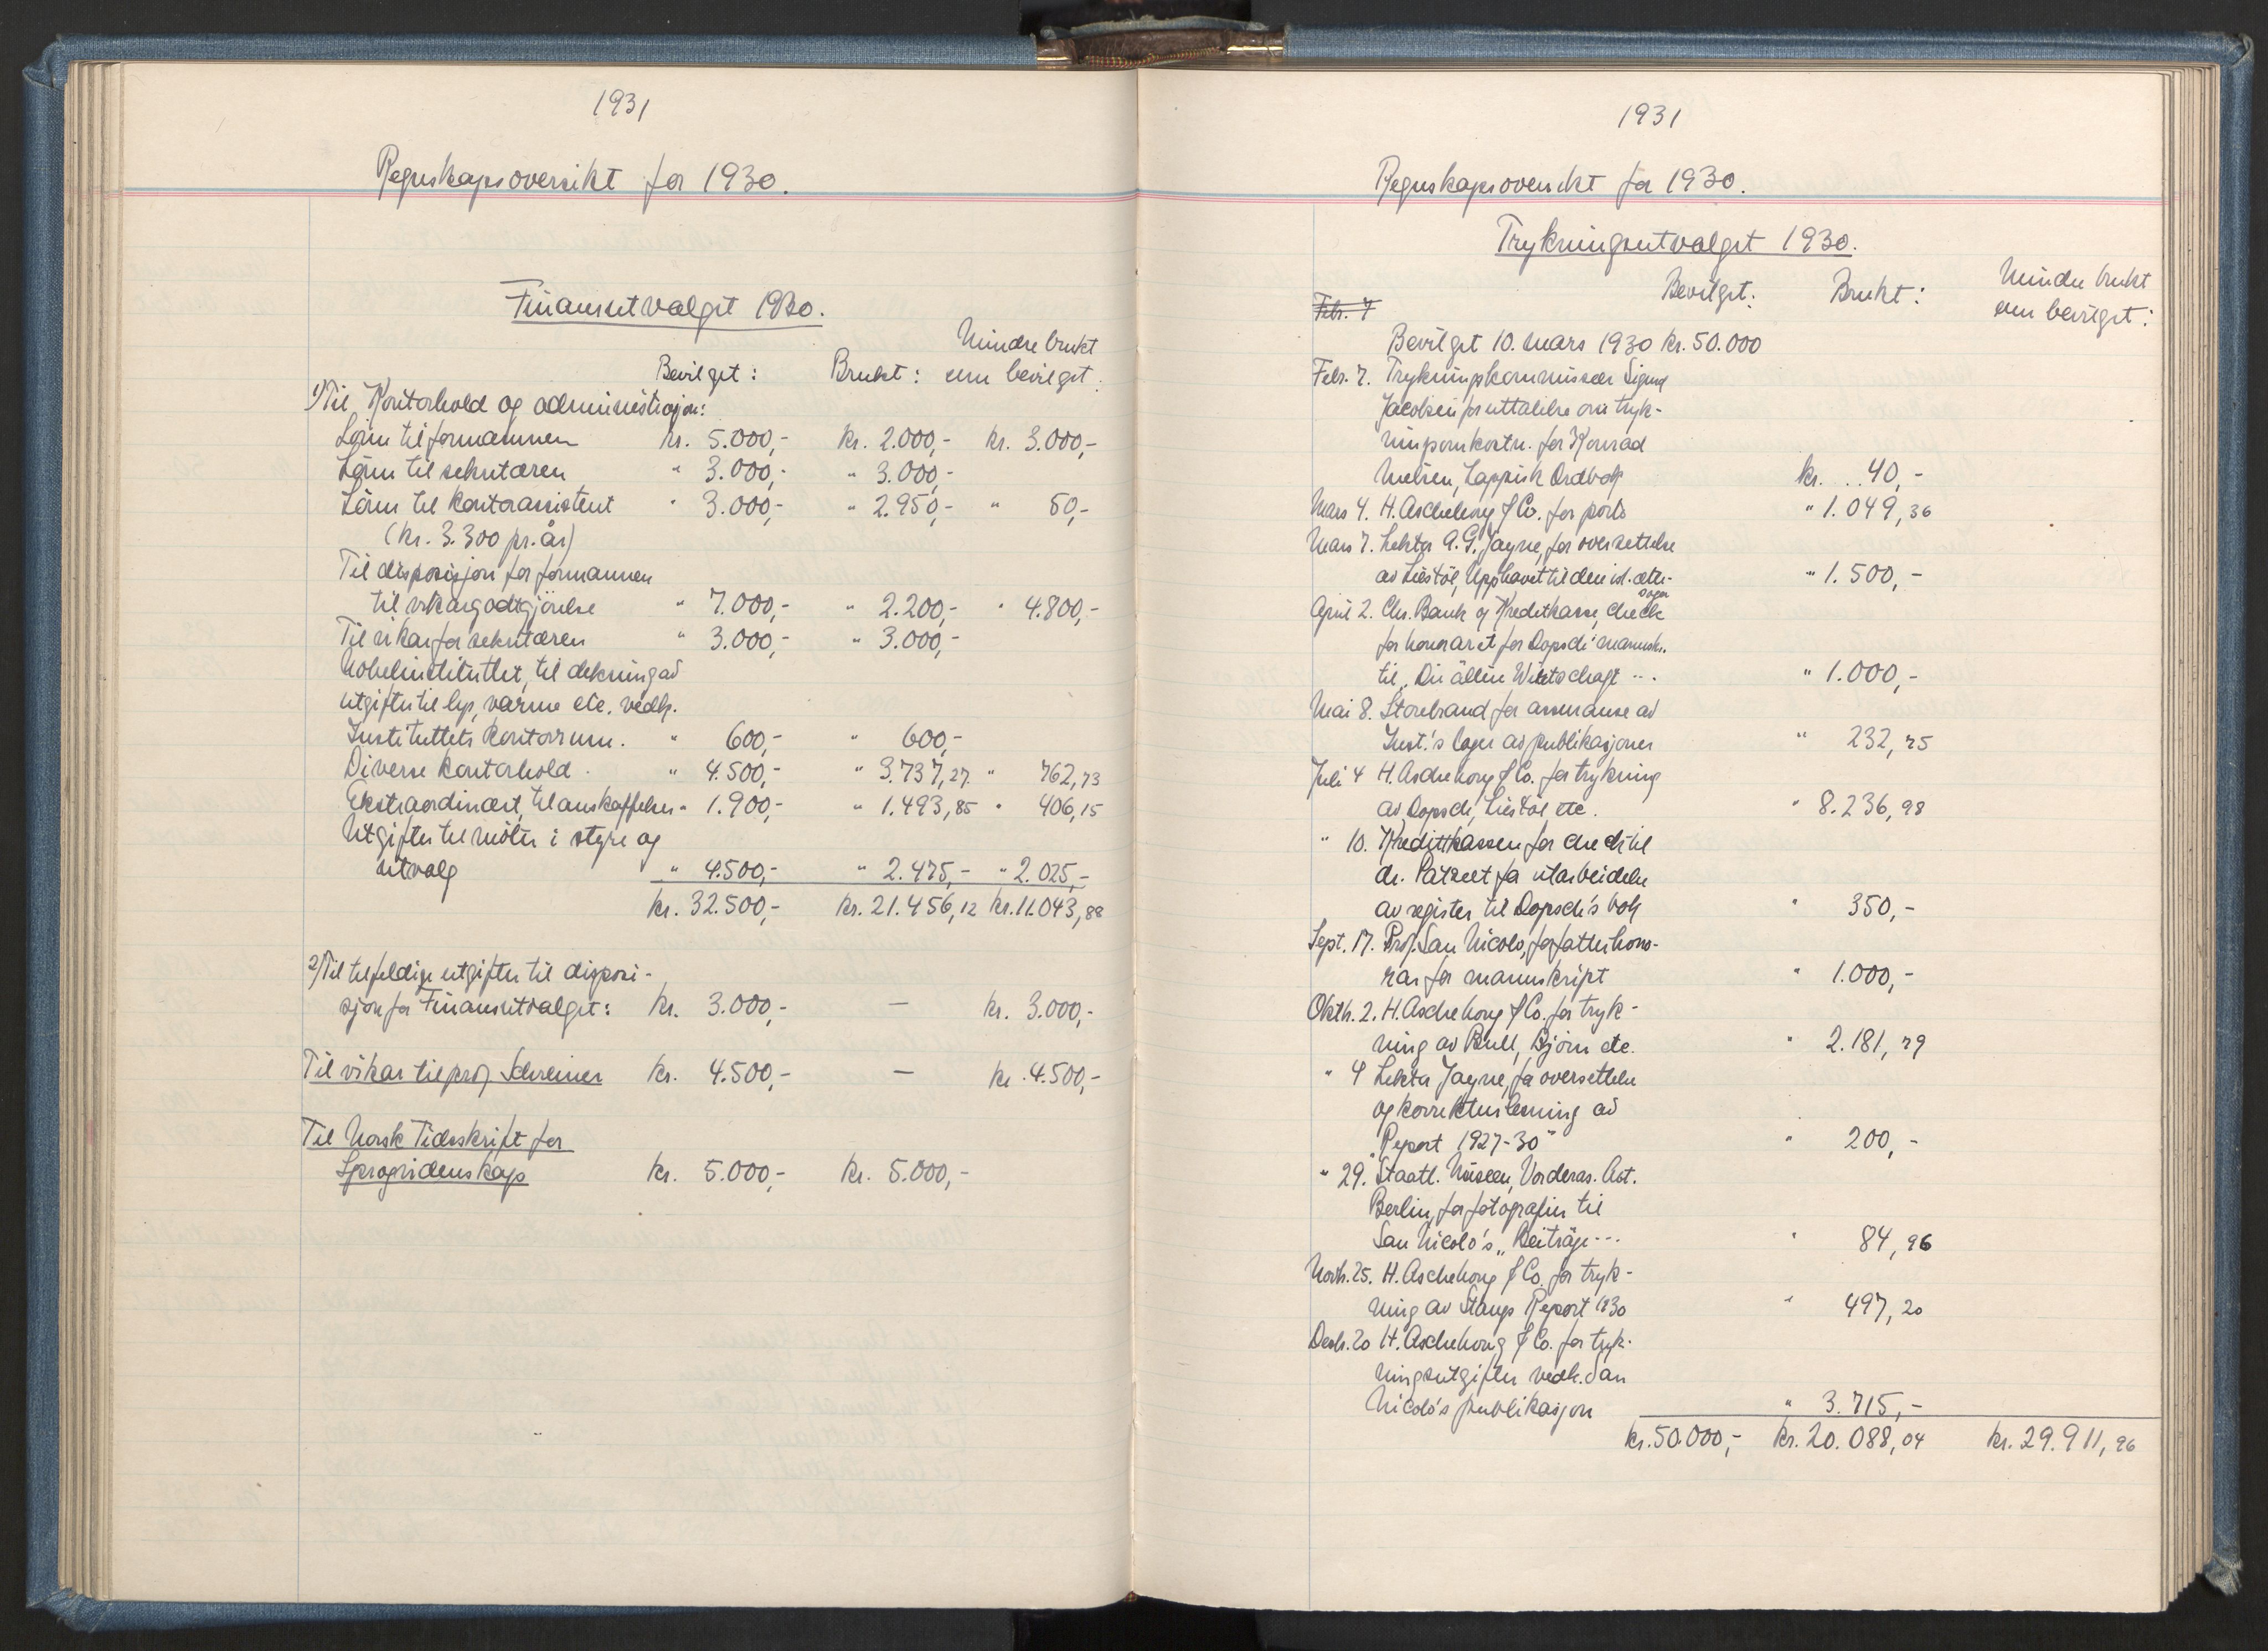 1931
Regnskapsoversikt for 1930.
Finansutvalget 1930.
Mindre brukt
Bevilget: Brukt: enn bevilget:
1) Til Kontorhold og administrasjon:
Lönn til formannen kr. 5.000,- kr. 2.000,- kr. 3.000,-
Lönn til sekretæren " 3.000,- " 3.000,-
Lönn til kontorassistent " 3.000,- " 2.950,- " 50,-
(kr. 3.300 pr. år)
Til disposisjon for formannen
til vikargodtgjörelse " 7.000,- " 2.200,- " 4.800,-
Til vikar for sekretæren " 3.000,- " 3.000,-
Nobelinstituttet, til dekning av
utgifter til lys, varme etc. vedk.
Instituttets kontorrum. " 600,- " 600,-
Diverse kontorhold. " 4.500,- " 3.737,27 " 762,73
Ekstraordinært, til anskaffelser " 1.900,- " 1.493,85 " 406,15
Utgifter til möter i styre og
utvalg " 4.500,- " 2.475,- " 2.025,-
kr. 32.500,- kr. 21.456,12 kr. 11.043,88
2) Til tilfeldige utgifter til disposi-
sjon for Finansutvalget: kr. 3.000,- — kr. 3.000,-
Til vikar til prof. Schreiner kr. 4.500,- — kr. 4.500,-
Til Norsk Tidsskrift for
Sprogvidenskap kr. 5.000,- kr. 5.000,-
1931
Regnskapsoversikt for 1930.
Trykningsutvalget 1930.
Mindre brukt
Bevilget: Brukt: enn bevilget:
Febr. 7
Bevilget 10. mars 1930 kr. 50.000
Febr. 7. Trykningskommissær Sigurd
Jacobsen for uttalelse om tryk-
ningsomkostn. for Konrad
Nielsen, Lappisk Ordbok kr. 40,-
Mars 4. H. Aschehoug & Co. for porto " 1.049,36
Mars 7. Lektor A. G. Jayne, for oversettelse
av Liestöl, Upphavet til den isl. ætte-
saga " 1.500,-
April 2. Chr. Bank og Kreditkasse, check
for honoraret for Dopsch' manuskr.
til "Die ältere Wirtschafts ... " 1.000,-
Mai 8. Storebrand for assuranse av
Inst.'s lager av publikasjoner " 232,75
Juli 4 H. Aschehoug & Co. for trykning
av Dopsch, Liestöl etc. " 8.236,98
" 10. Kreditkassen for check til
dr. Patzelt for utarbeidelse
av register til Dopsch's bok " 350,-
Sept. 17. Prof. San Nicolò, forfatterhono-
rar for manuskript " 1.000,-
Oktb. 2. H. Aschehoug & Co. for tryk-
ning av Bull, Björn etc. " 2.181,79
" 4 Lektor Jayne, for oversettelse
og korrekturlesning av
"Report 1927-30" " 200,-
" 29. Staatl. Museen, Vorderas. Abt.
Berlin, for fotografier til
San Nicolò's "Beiträge... " 84,96
Novb. 25. H. Aschehoug & Co. for tryk-
ning av Stangs Report 1930 " 497,20
Desb. 20 H. Aschehoug & Co. for tryk-
ningsutgifter vedk. San
Nicolò's publikasjon " 3.715,-
kr. 50.000,- kr. 20.088,04 kr. 29.911,96